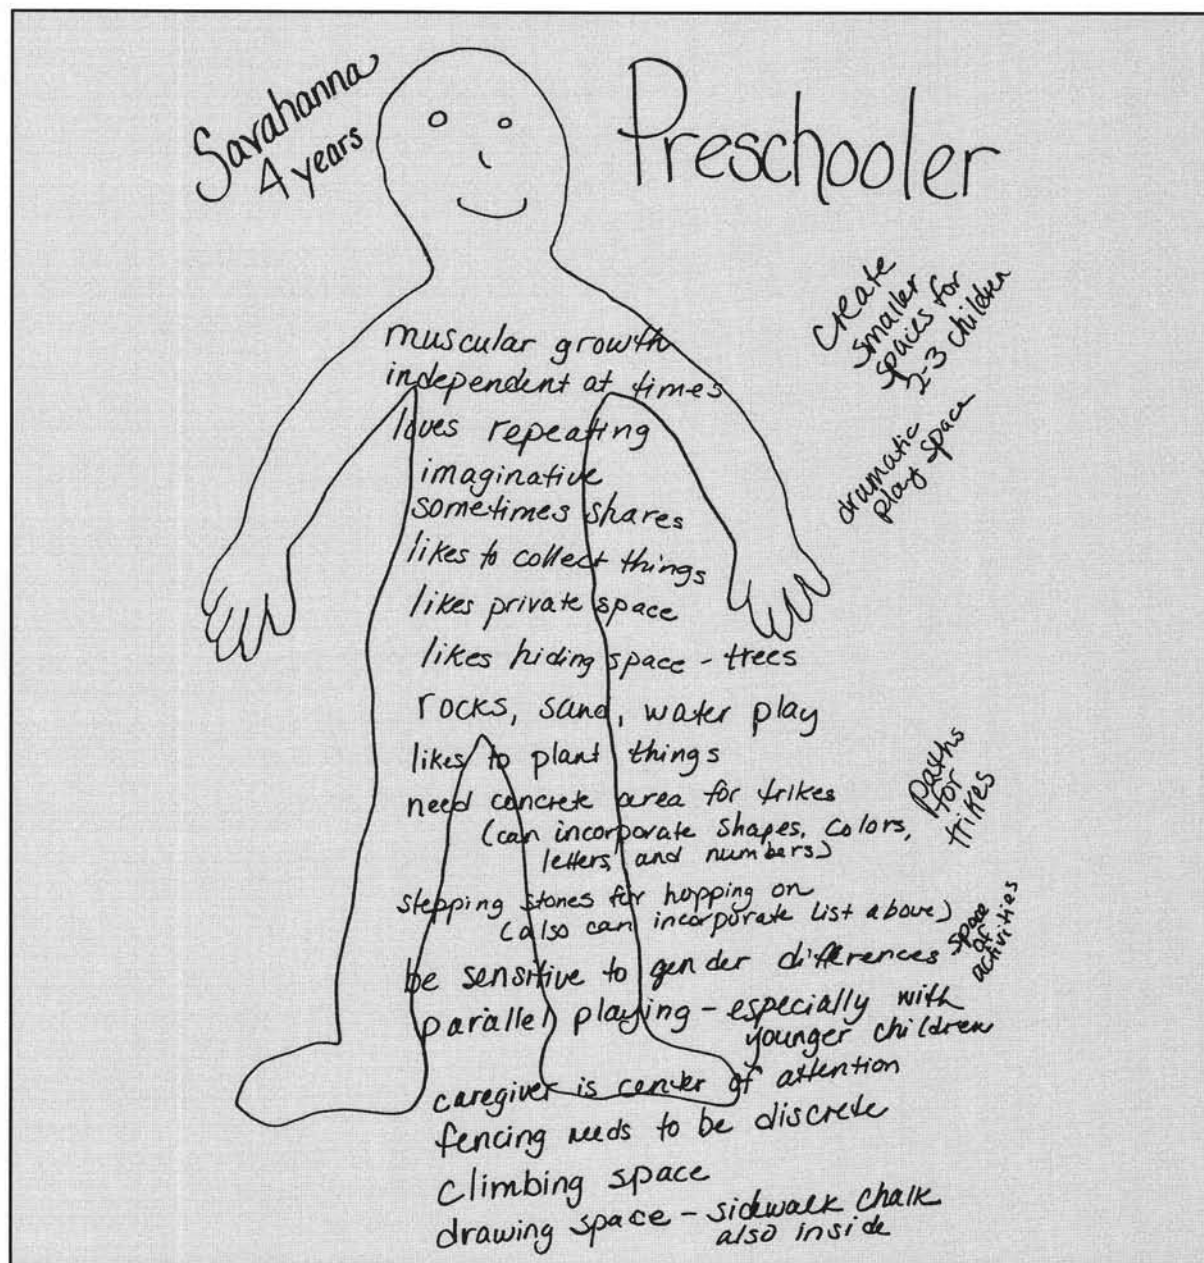 Savahanna
4 years
Preschooler
create
smaller
spaces for
2-3 children
dramatic
play space
muscular growth
independent at times
loves repeating
imaginative
sometimes shares
likes to collect things
likes private space
likes hiding space - trees
rocks, sand, water play
likes to plant things
need concrete area for trikes
(can incorporate shapes, colors,
letters, and numbers)
paths
for
trikes
stepping stones for hopping on
(also can incorporate list above)
be sensitive to gender differences
space
of
activities
parallel playing - especially with
younger children
caregiver is center of attention
fencing needs to be discrete
climbing space
drawing space - sidewalk chalk
also inside